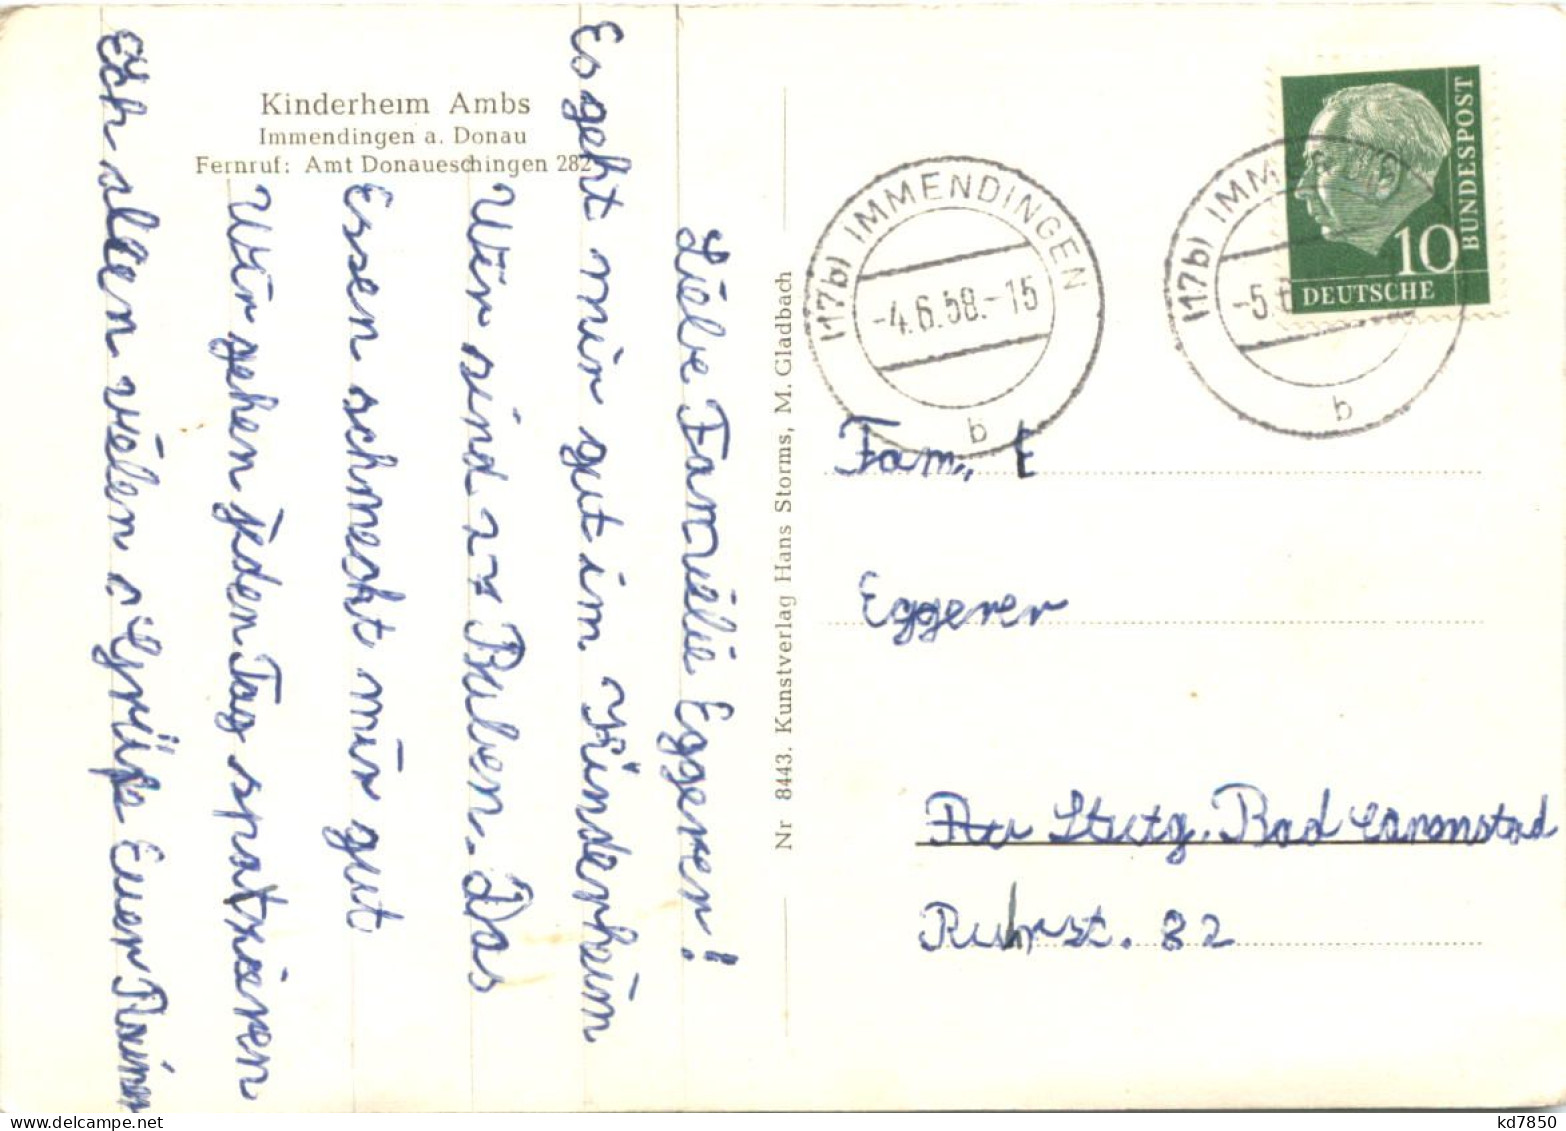 Kinderheim Ambs
Immendingen a. Donau
Fernruf: Amt Donaueschingen 282
Liebe Familie Eggerer!
Es geht mir gut im Kinderheim
Wir sind 27 Buben. Das
Essen schmeckt mir gut
Wir gehen jeden Tag spatzieren
Ech allen vielen Grüße Euer Rainer
Nr 8443. Kunstverlag Hans Storms, M. Gladbach
(17b) IMMENDINGEN
-4.6.58.-15
b
(17b) IMM
-5.6
b
10
DEUTSCHE
BUNDESPOST
Fam. E
Eggerer
Stutg. Bad Cannstad
Ruhrst. 82
kd7850